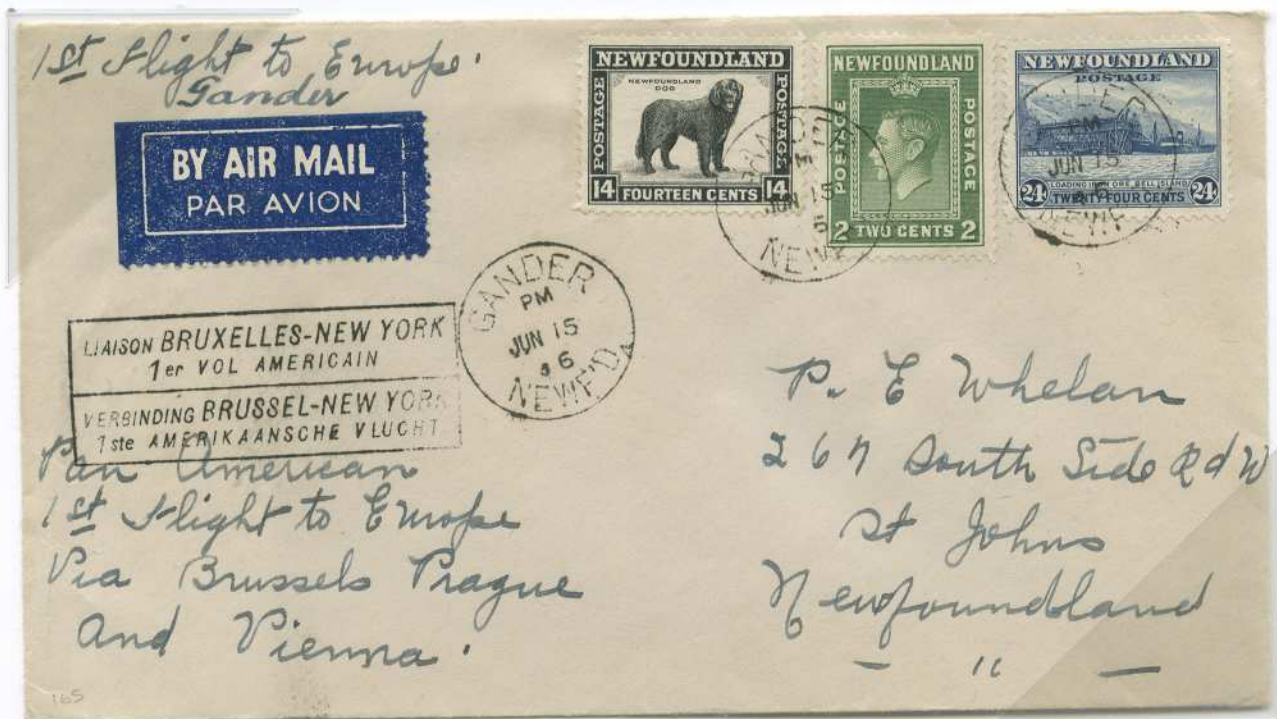 1st Flight to Europe.
Gander
BY AIR MAIL
PAR AVION
NEWFOUNDLAND
NEWFOUNDLAND
DOG
POSTAGE
POSTAGE
14 FOURTEEN CENTS 14
NEWFOUNDLAND
POSTAGE
POSTAGE
2 TWO CENTS 2
NEWFOUNDLAND
POSTAGE
LOADING IRON ORE, BELL ISLAND
24 TWENTY FOUR CENTS 24
JUN 15
NEWF
PM
JUN 15
NEWF
GANDER
PM
JUN 15
46
NEWF'D.
LIAISON BRUXELLES-NEW YORK
1er VOL AMERICAIN
VERBINDING BRUSSEL-NEW YORK
1ste AMERIKAANSCHE VLUCHT
Pan American
1st Flight to Europe
Via Brussels Prague
And Vienna.
P. E Whelan
267 South Side Rd W
St Johns
Newfoundland
— " —
165